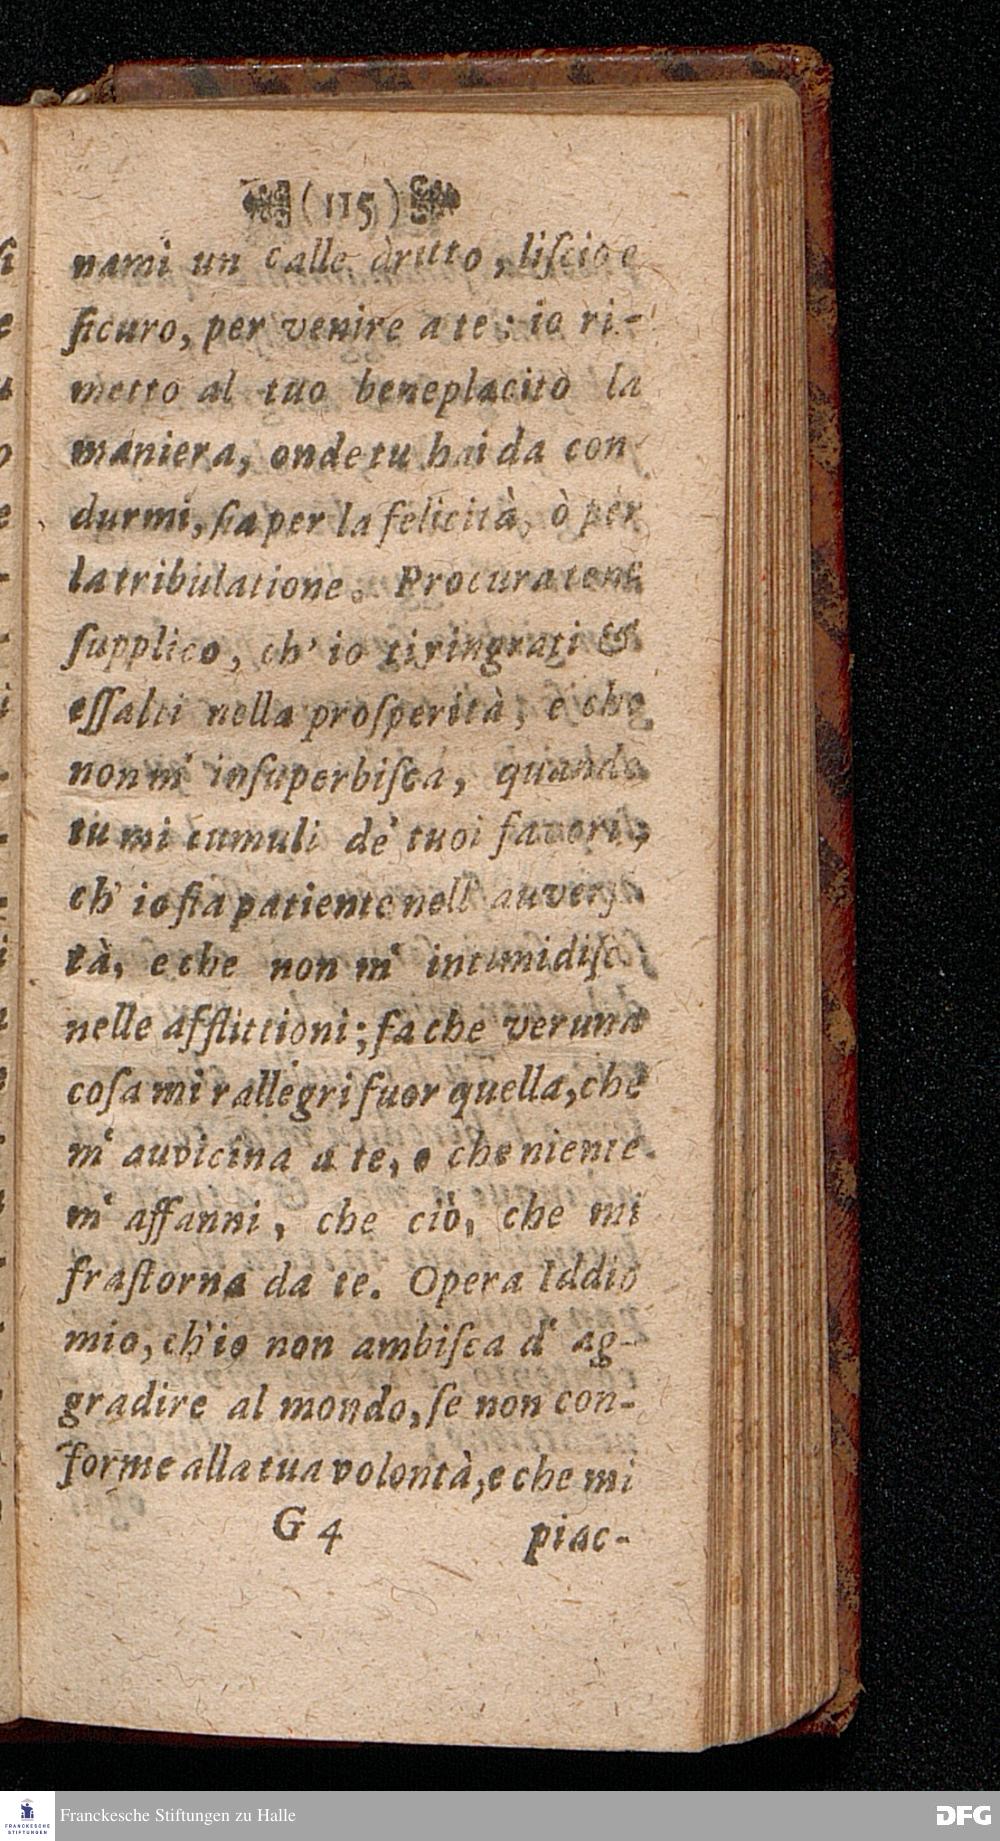 (115)
nami un calle dritto, liſcio e
ſicuro, per venire a te: io ri-
metto al tuo beneplacito la
maniera, onde tu hai da con
durmi, ſia per la felicità, ò per
la tribulatione. Procura tene
ſupplico, ch' io ti ringrati &
eſſalti nella proſperità, e che
non m' inſuperbiſca, quando
tu mi cumuli de' tuoi favori;
ch' io ſia patiente nell' auverſi
tà, e che non m' intimidiſca
nelle afflittioni; fa che veruna
coſa mi rallegri fuor quella, che
m' auvicina a te, e che niente
m' affanni, che ciò, che mi
fraſtorna da te. Opera Iddio
mio, ch' io non ambiſca d' ag-
gradire al mondo, ſe non con-
forme alla tua volontà, e che mi
G 4 piac-
FRANCKESCHE STIFTUNGEN
Franckesche Stiftungen zu Halle
DFG